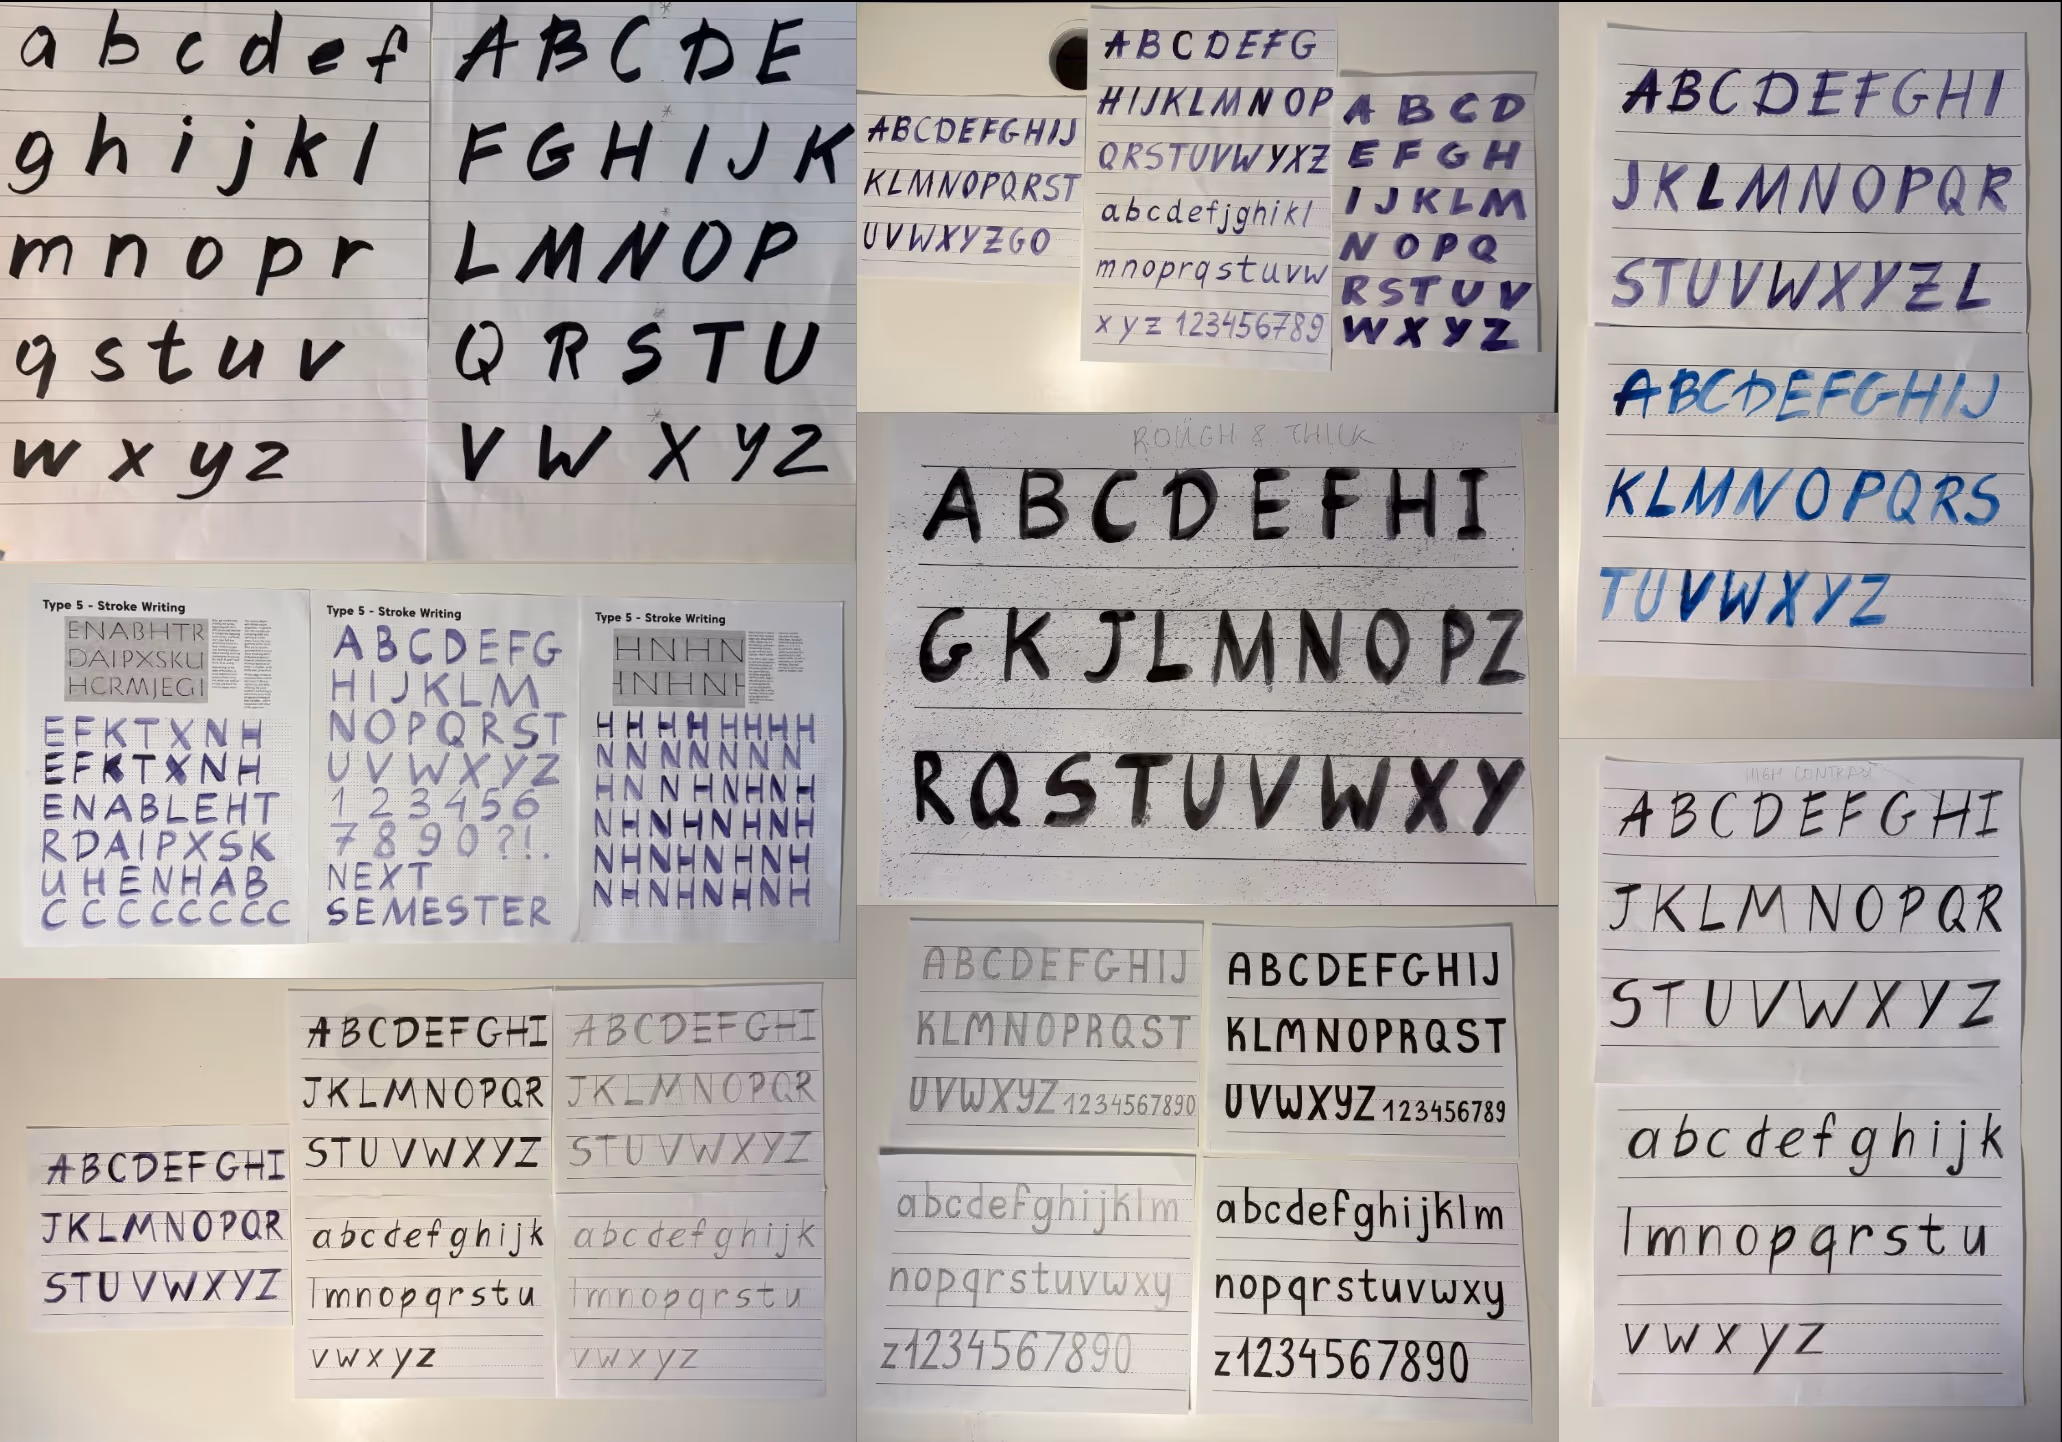 a b c d e f
g h i j k l
m n o p r
q s t u v
w x y z
A B C D E
F G H I J K
L M N O P
Q R S T U
V W X Y Z
ABCDEFGHIJ
KLMNOPQRST
UVWXYZGO
ABCDEFG
HIJKLMNOP
QRSTUVWYXZ
abcdefjghikl
mnoprqstuvw
xyz 123456789
A B C D
E F G H
I J K L M
N O P Q
R S T U V
W X Y Z
ABCDEFGHI
JKLMNOPQR
STUVWXYZL
ABCDEFGHIJ
KLMNOPQRS
TUVWXYZ
ROUGH & THICK
A B C D E F H I
G K J L M N O P Z
R Q S T U V W X Y
Type 5 - Stroke Writing
ENABHTR
DAIPXSKU
HCRMJEGI
EFKTXNH
EFKTXNH
ENABLEHT
RDAIPXSK
UHENHAB
C C C C C C C C
Type 5 - Stroke Writing
ABCDEFG
HIJKLM
NOPQRST
UVWXYZ
123456
7890?!.
NEXT
SEMESTER
Type 5 - Stroke Writing
HNHN
INHNH
H H H H H H H H
N N N N N N N N
HN N HNHNH
NHNHNHNH
NHNHNHNH
NHNHNHNH
ABCDEFGHI
JKLMNOPQR
STUVWXYZ
ABCDEFGHI
JKLMNOPQR
STUVWXYZ
abcdefghijk
lmnopqrstu
vwxyz
ABCDEFGHI
JKLMNOPQR
STUVWXYZ
abcdefghijk
lmnopqrstu
vwxyz
ABCDEFGHIJ
KLMNOPRQST
UVWXYZ 1234567890
ABCDEFGHIJ
KLMNOPRQST
UVWXYZ 123456789
abcdefghijklm
nopqrstuvwxy
z1234567890
abcdefghijklm
nopqrstuvwxy
z1234567890
HIGH CONTRAST
ABCDEFGHI
JKLMNOPQR
STUVWXYZ
abcdefghijk
lmnopqrstu
vwxyz